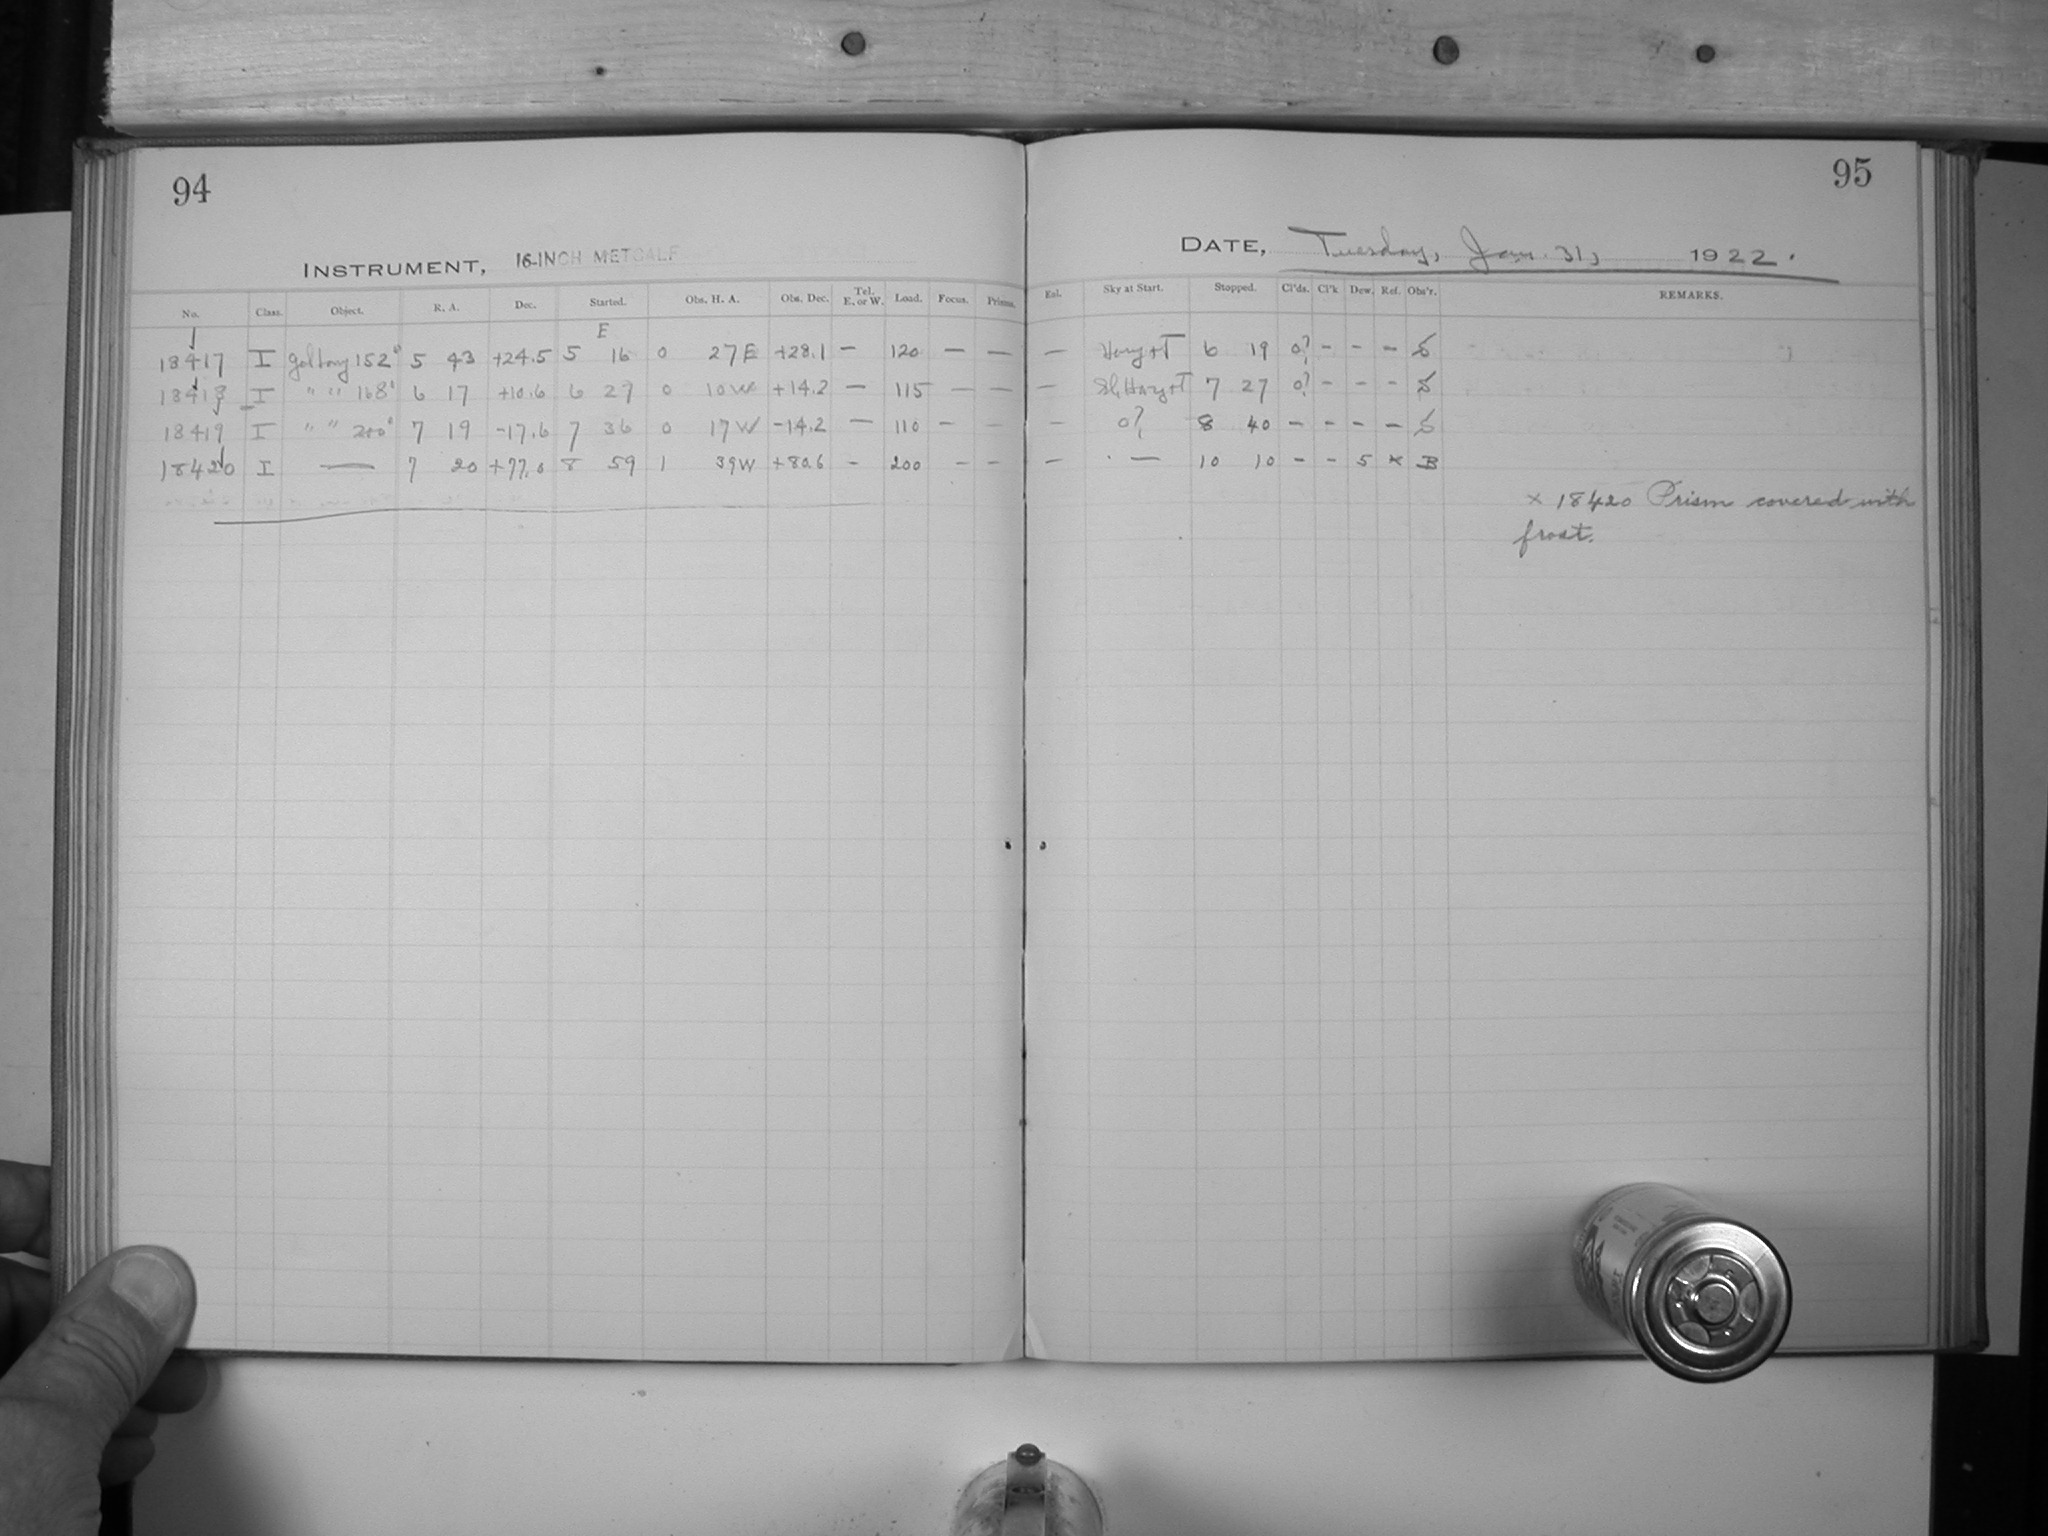 94
95
INSTRUMENT, 16-INCH METCALF
DATE, Tuesday, Jan. 31, 1922.
No. Class. Object. R. A. Dec. Started. Obs. H. A. Obs. Dec. Tel. E. or W. Load. Focus. Prisms. Eol. Sky at Start. Stopped. Cl'ds. Cl'k Dew. Ref. Obs'r. REMARKS.
E
18417 I 152° 5 43 +24.5 5 16 0 27 E +28.1 — 120 — — — 6 19 0? - - - S
18418 I " " 168° 6 17 +10.6 6 27 0 10 W +14.2 — 115 — — — 7 27 0? - - - S
18419 I " " 200° 7 19 -17.6 7 36 0 17 W -14.2 — 110 - - — 0? 8 40 - - - - S
18420 I — 7 20 +77.0 8 59 1 39 W +80.6 - 200 - - — — 10 10 - - 5 x B
x 18420 Prism covered with
frost.